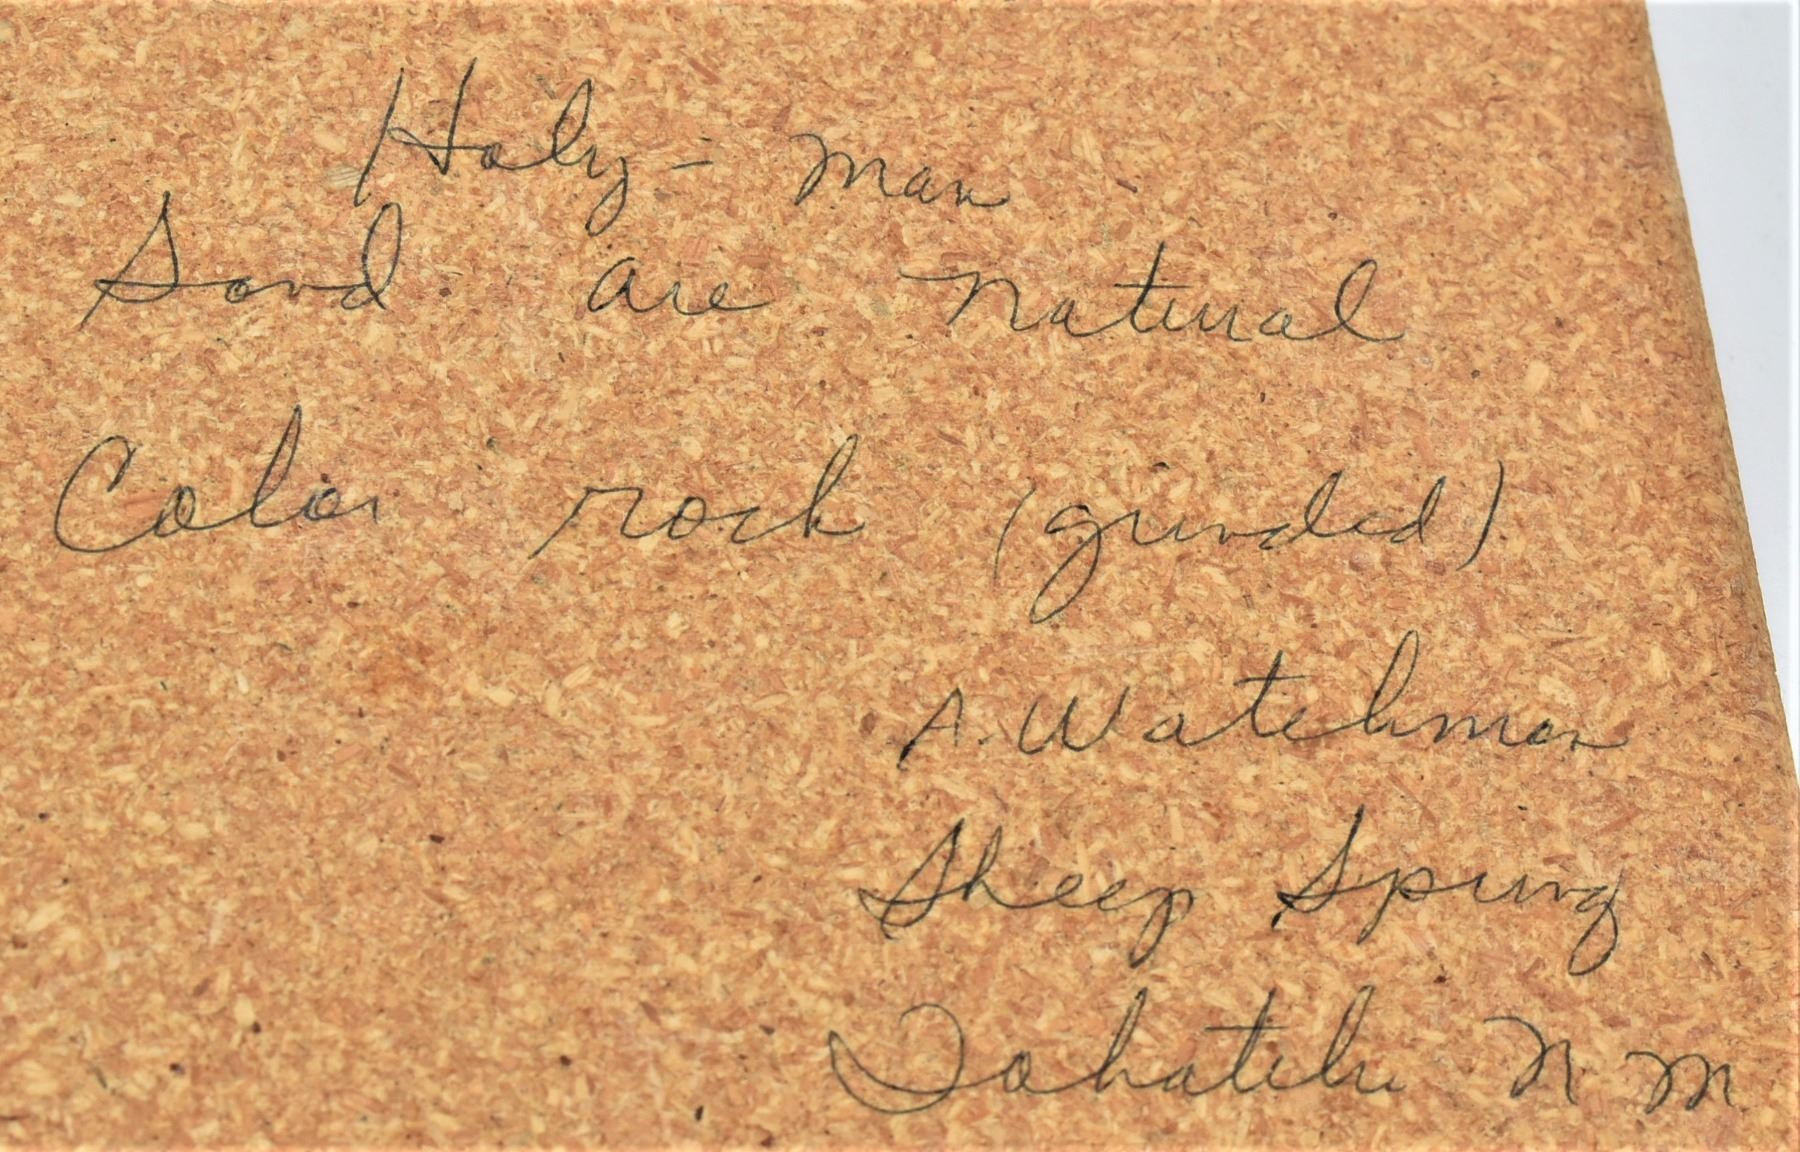 Holy - man
Sand are natural
Color rock (grinded)
A. Watchman
Sheep Spring
Tohatchi N M